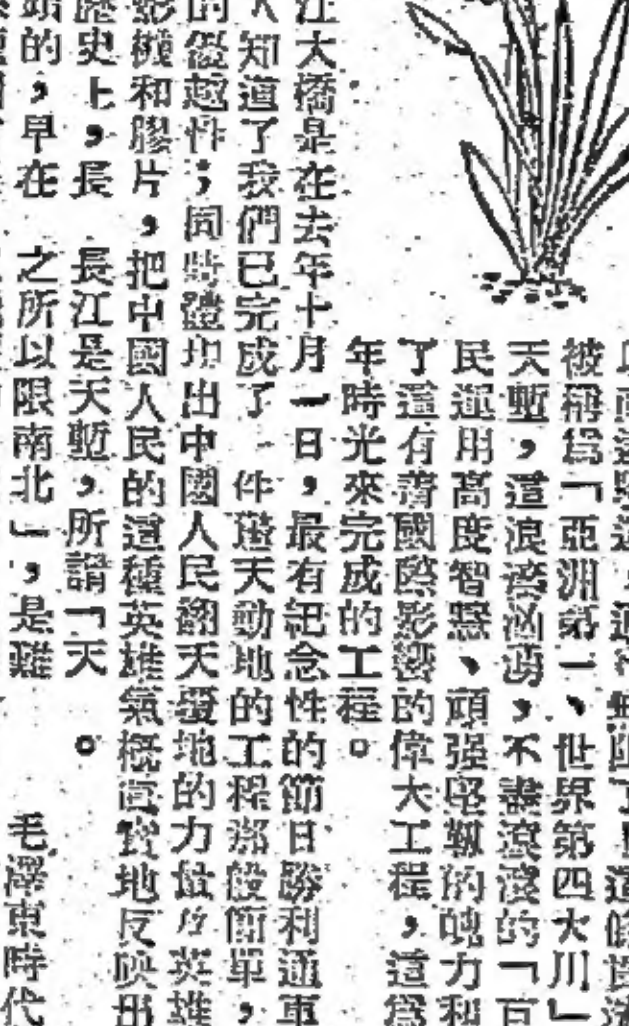 被稱爲「亞洲第一、世界第四大川」
天塹,這浪濤汹湧,不盡滾滾的「百
民運用高度智慧、頑强堅靱的魄力和
了這有着國際影響的偉大工程,這爲
年時光來完成的工程。
江大橋是在去年十月一日,最有記念性的節日勝利通車
人知道了我們已完成了一件驚天動地的工程那般簡單,
的優越性;同時體現出中國人民翻天覆地的力量及英雄
影機和膠片,把中國人民的這種英雄氣概真實地反映出
歷史上,長
的,早在
長江是天塹,所謂「天
之所以限南北」,是難
。
毛澤東時代